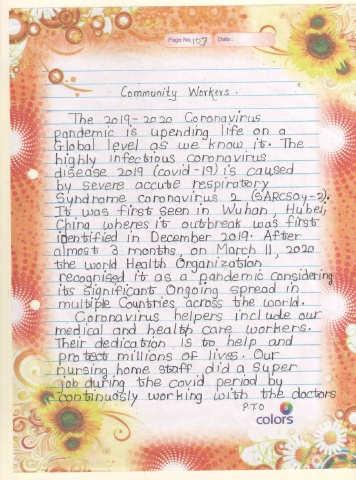 Page No. 107 Date :
Community Workers.
The 2019-2020 Coronavirus
pandemic is upending life on a
Global level as we know it. The
highly infectious coronavirus
disease 2019 (covid-19) is caused
by severe accute respiratory
Syndrome coronavirus 2 (SARCSOY-2).
It was first seen in Wuhan, Hubei,
China wheres it outbreak was first
identified in December 2019. After
almost 3 months, on March 11, 2020
the world Health Organization
recognised it as a pandemic considering
its Significant Ongoing spread in
multiple Countries across the world.
Coronavirus helpers include our
medical and health care workers.
Their dedication is to help and
protect millions of lives. Our
nursing home staff did a super
job during the covid period by
continuosly working with the doctors
P.T.O
colors